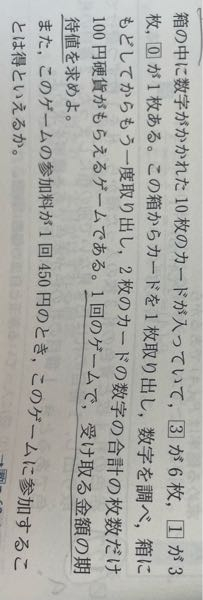 箱の中に数字がかかれた 10 枚のカードが入っていて，3 が 6 枚，1 が 3
枚，0 が 1 枚ある。この箱からカードを 1 枚取り出し，数字を調べ，箱に
もどしてからもう一度取り出し，2 枚のカードの数字の合計の枚数だけ
100 円硬貨がもらえるゲームである。1 回のゲームで，受け取る金額の期
待値を求めよ。
また，このゲームの参加料が 1 回 450 円のとき，このゲームに参加するこ
とは得といえるか。